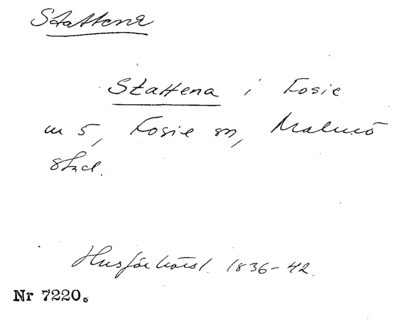 Stattena
Stattena i Fosie
nr 5, Fosie sn, Malmö
stad.
Husförhörsl. 1836-42.
Nr 7220.